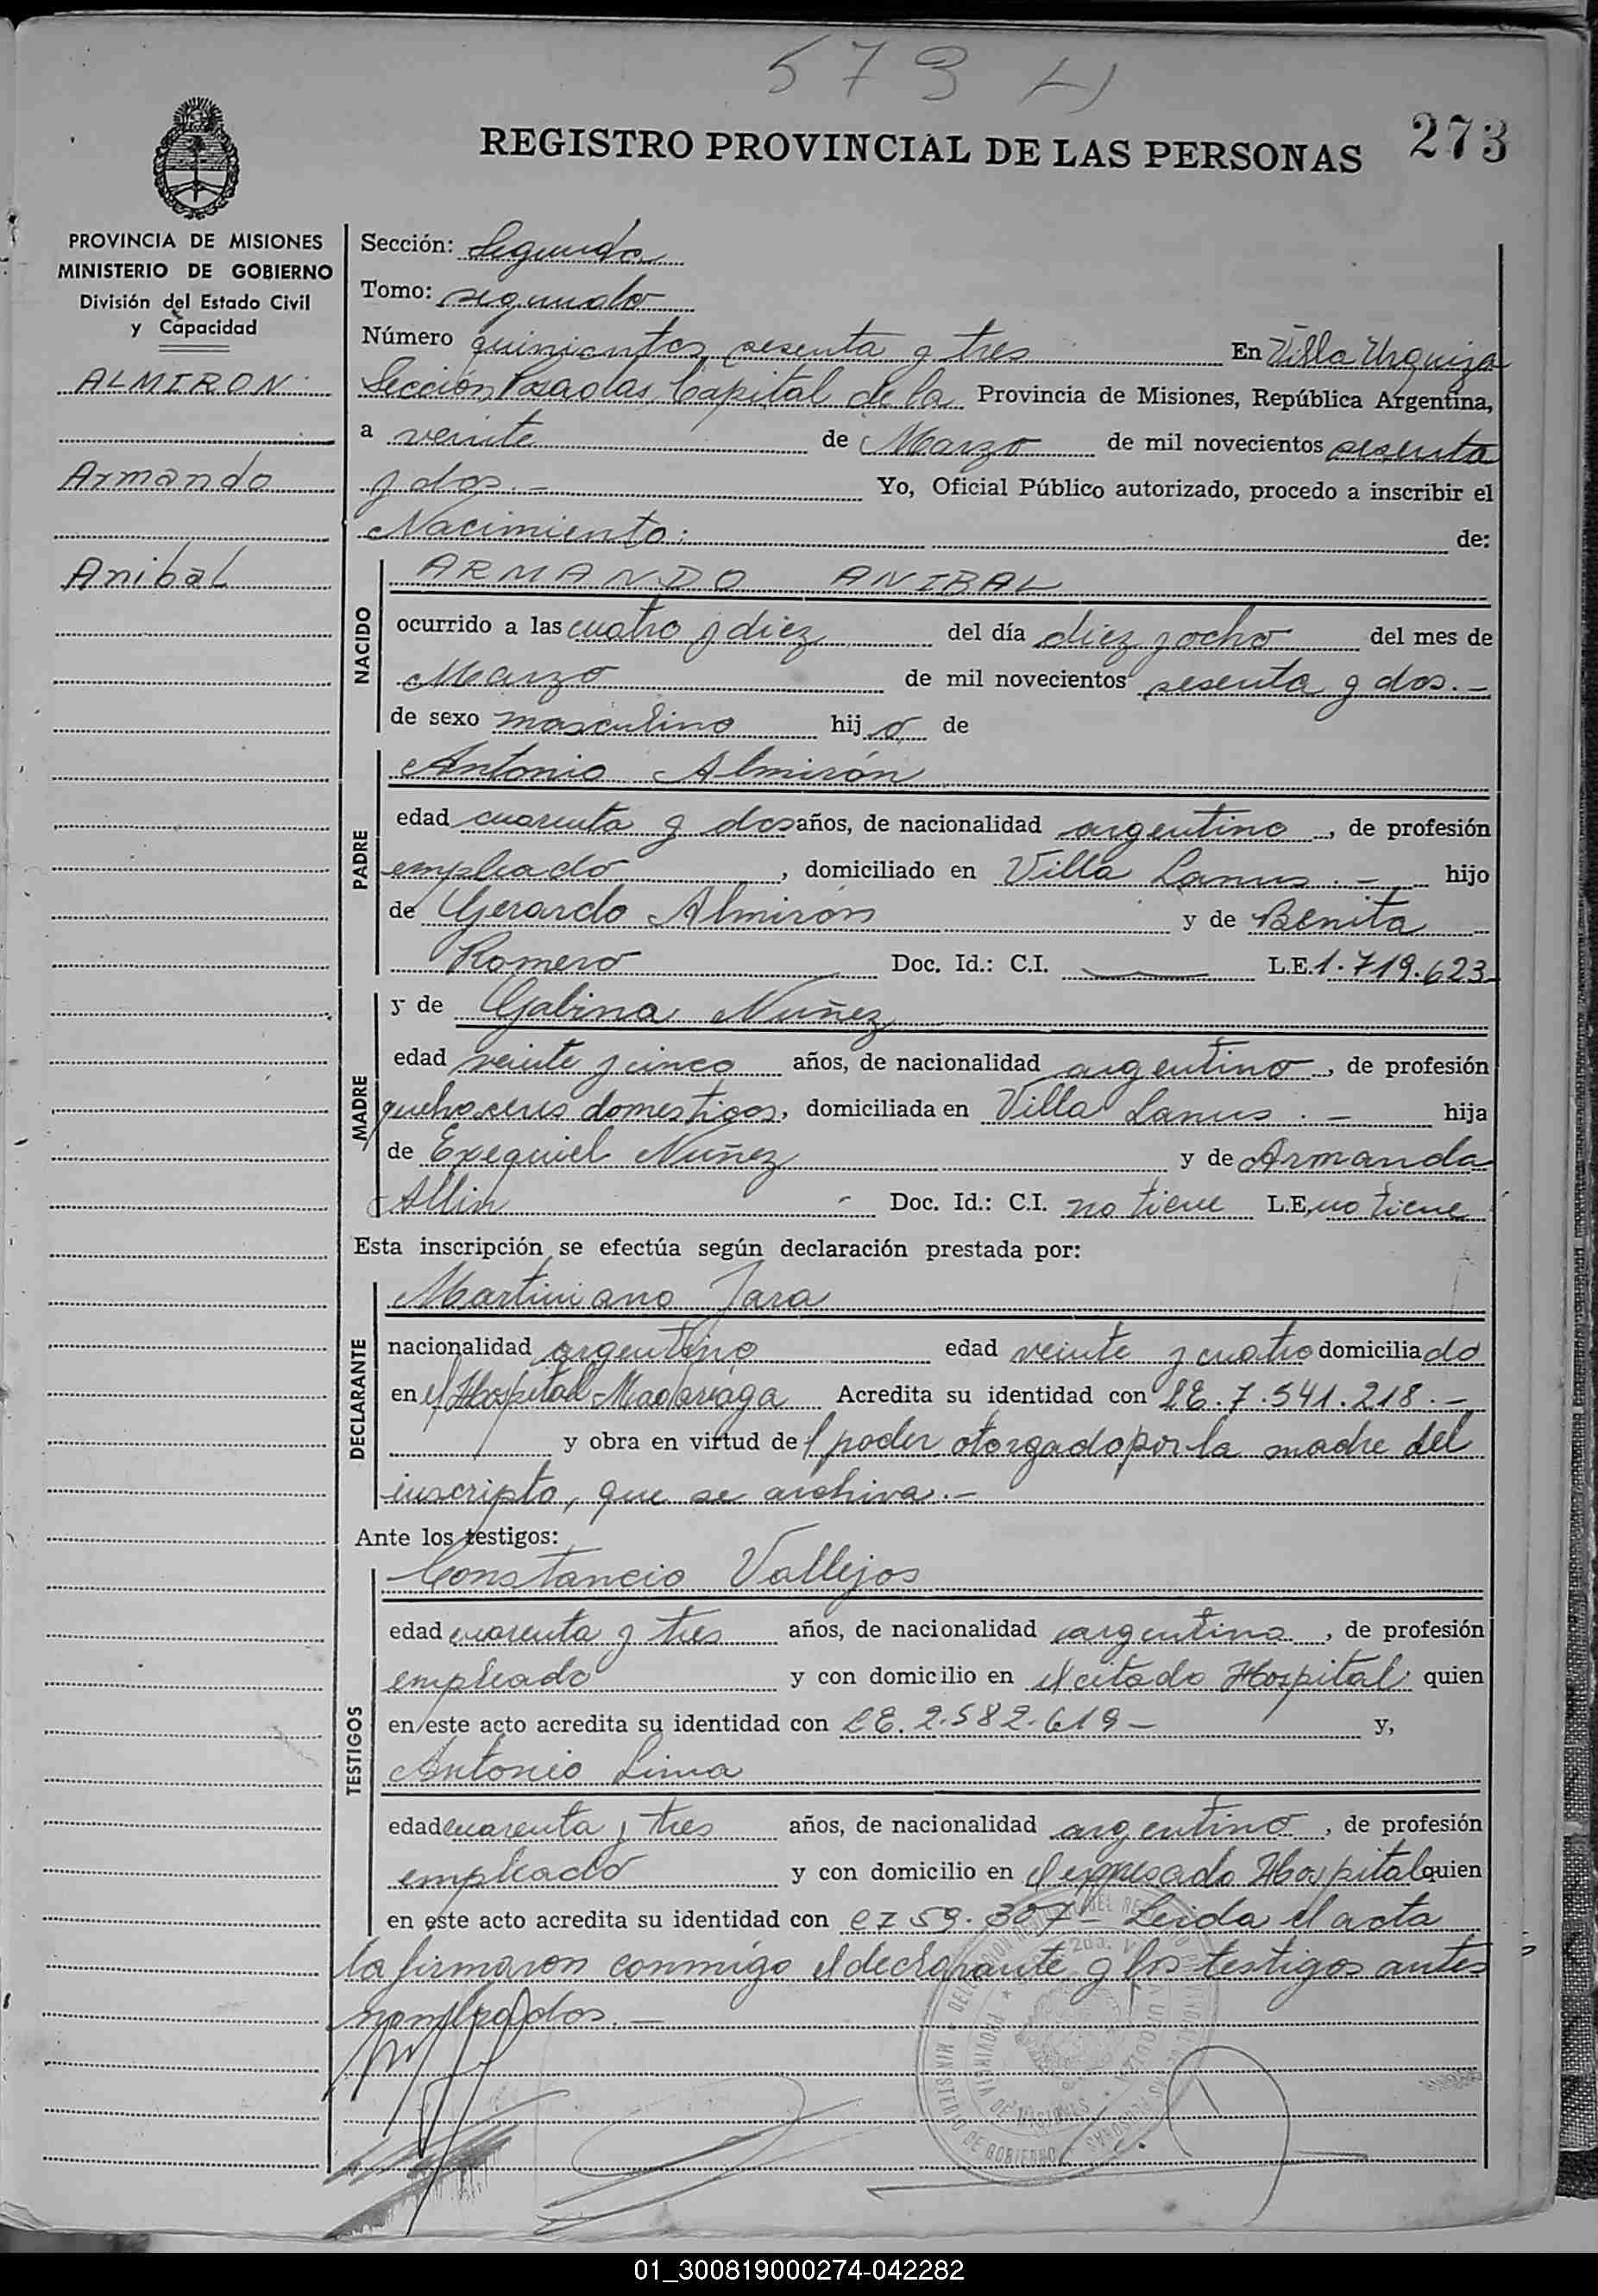 573
REGISTRO PROVINCIAL DE LAS PERSONAS 273
PROVINCIA DE MISIONES
MINISTERIO DE GOBIERNO
División del Estado Civil
y Capacidad
ALMIRON
Armando
Anibal
Sección: Segunda
Tomo: segundo
Número quinientos sesenta y tres En Villa Urquiza
Sección Posadas Capital de la Provincia de Misiones, República Argentina,
a veinte de Marzo de mil novecientos sesenta
y dos.- Yo, Oficial Público autorizado, procedo a inscribir el
Nacimiento: de:
NACIDO
ARMANDO ANIBAL
ocurrido a las cuatro y diez del día diez y ocho del mes de
Marzo de mil novecientos sesenta y dos.-
de sexo masculino hijo de
PADRE
Antonio Almirón
edad cuarenta y dos años, de nacionalidad argentino, de profesión
empleado, domiciliado en Villa Lanus.- hijo
de Gerardo Almirón y de Benita
Romero Doc. Id.: C.I. — L.E. 1.719.623
MADRE
y de Gabina Nuñez
edad veinte y cinco años, de nacionalidad argentino, de profesión
quehaceres domesticos, domiciliada en Villa Lanus.- hija
de Exequiel Nuñez y de Armanda
Allin Doc. Id.: C.I. no tiene L.E. no tiene
Esta inscripción se efectúa según declaración prestada por:
DECLARANTE
Martiniano Jara
nacionalidad argentino edad veinte y cuatro domiciliado
en el Hospital Madariaga Acredita su identidad con LE. 7.541.218.-
y obra en virtud del poder otorgado por la madre del
inscripto, que se archiva.-
Ante los testigos:
TESTIGOS
Constancio Vallejos
edad cuarenta y tres años, de nacionalidad argentino, de profesión
empleado y con domicilio en el citado Hospital quien
en este acto acredita su identidad con LE. 2.582.619- y,
Antonio Lima
edad cuarenta y tres años, de nacionalidad argentino, de profesión
empleado y con domicilio en el expresado Hospital quien
en este acto acredita su identidad con 59.307- Leida el acta
la firmaron conmigo el declarante y los testigos antes
nombrados.-
MINISTERIO DE GOBIERNO
PROVINCIA DE MISIONES
01_300819000274-042282